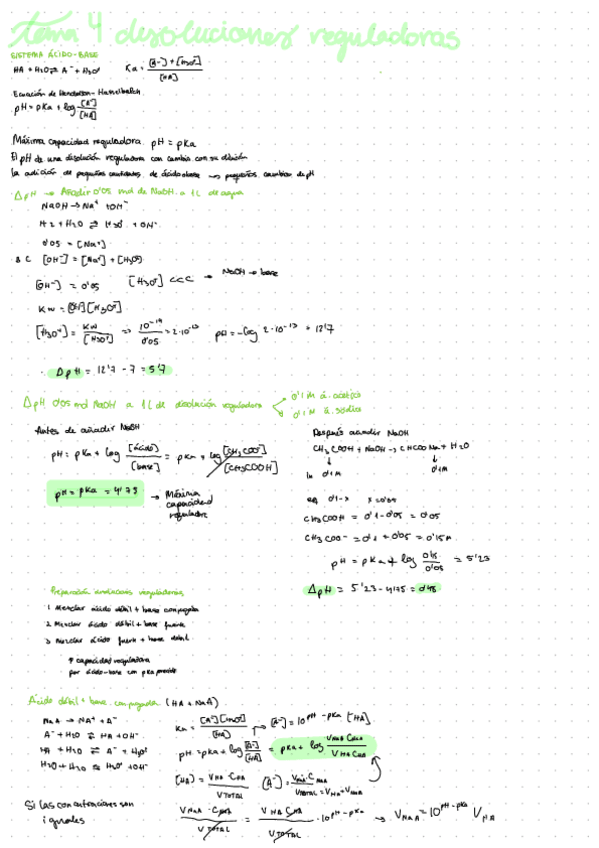 tema 4 disoluciones reguladoras
SISTEMA ÁCIDO-BASE
HA + H2O ⇌ A⁻ + H3O⁺ Ka = [A⁻] + [H3O⁺] / [HA]
Ecuación de Henderson-Hasselbalch
pH = pKa + log [A⁻]/[HA]
Máxima capacidad reguladora pH = pKa
El pH de una disolución reguladora con cambia con su dilución
la adición de pequeñas cantidades de ácido o base → pequeños cambios de pH
ΔpH → Añadir 0'05 mol de NaOH a 1L de agua
NaOH → Na⁺ + OH⁻
H2 + H2O ⇌ H3O⁺ + OH⁻
0'05 = [Na⁺]
B.C [OH⁻] = [Na⁺] + [H3O⁺]
[OH⁻] = 0'05 [H3O⁺] <<< → NaOH → base
Kw = [OH⁻][H3O⁺]
[H3O⁺] = Kw/[H3O⁺] ⇒ 10⁻¹⁴/0'05 = 2·10⁻¹³ pH = -log 2·10⁻¹³ = 12'7
ΔpH = 12'7 - 7 = 5'7
ΔpH 0'05 mol NaOH a 1L de disolución reguladora
0'1 M á. acético
0'1 M á. sódico
Antes de añadir NaOH
pH = pKa + log [ácido]/[base] = pKa + log [CH3COO⁻]/[CH3COOH]
pH = pKa = 4'75 → Máxima
capacidad
reguladora
Después añadir NaOH
CH3COOH + NaOH → CHCOONa + H2O
↓ ↓
In 0'1M 0'1M
eq 0'1-x x = 0'05
CH3COOH = 0'1 - 0'05 = 0'05
CH3COO⁻ = 0'1 + 0'05 = 0'15M
pH = pKa + log 0'15/0'05 = 5'23
ΔpH = 5'23 - 4'75 = 0'48
Preparación disoluciones reguladoras
1 Mezclar ácido débil + base conjugada
2 Mezclar ácido débil + base fuerte
3 Mezclar ácido fuerte + base débil
↑ capacidad reguladora
par ácido-base con pKa
Ácido débil + base conjugada (HA + NaA)
NaA → NA⁺ + A⁻
A⁻ + H2O ⇌ HA + OH⁻
HA + H2O ⇌ A⁻ + H3O⁺
H2O + H2O ⇌ H3O⁺ + OH⁻
Ka = [A⁻][H3O⁺]/[HA] → [A⁻] = 10^(pH - pKa) [HA]
pH = pKa + log [A⁻]/[HA] = pKa + log VNaA CNaA / VHA CHA
[HA] = VHA · CHA / VTOTAL [A⁻] = VNaA · CNaA / VTOTAL = VHA + VNaA
Si las concentraciones son
iguales
VNaA · CNaA / VTOTAL = VHA CHA / VTOTAL · 10^(pH - pKa) → VNaA = 10^(pH - pKa) VHA